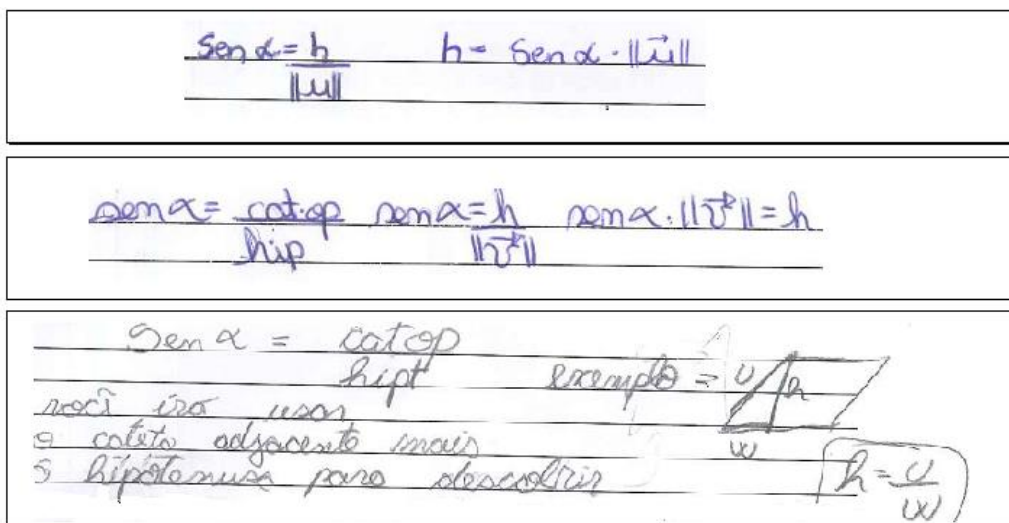 Sen α = h / ||u|| h = Sen α · ||u⃗||
sen α = cat.op / hip sen α = h / ||v⃗|| sen α . ||v⃗|| = h
Sen α = cat op / hipt exemplo = U h w
você irá usar
o cateto adjacente mais
o hipotenusa para descobrir h = U / w